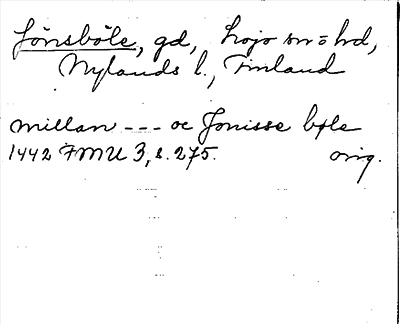 Jönsböle, gd, Lojo sn o hd,
Nylands l., Finland
millan --- oc Jonisse bøle
1442 FMU 3, s. 275. orig.